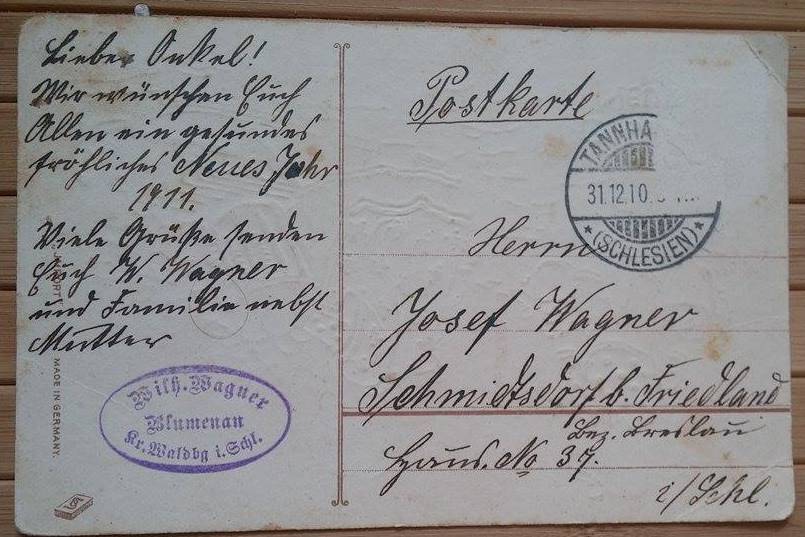 Lieber Onkel!
Wir wünschen Euch
Allen ein gesundes
fröhliches Neues Jahr
1911.
Viele Grüße senden
Euch W. Wagner
und Familie nebst
Mutter
Wilh. Wagner
Blumenau
Kr. Waldbg i. Schl.
MADE IN GERMANY.
Postkarte
TANNHA
31.12.10.
(SCHLESIEN)
Herrn
Josef Wagner
Schmidtsdorf b. Friedland
Bez. Breslau
Haus. No 37.
i/Schl.